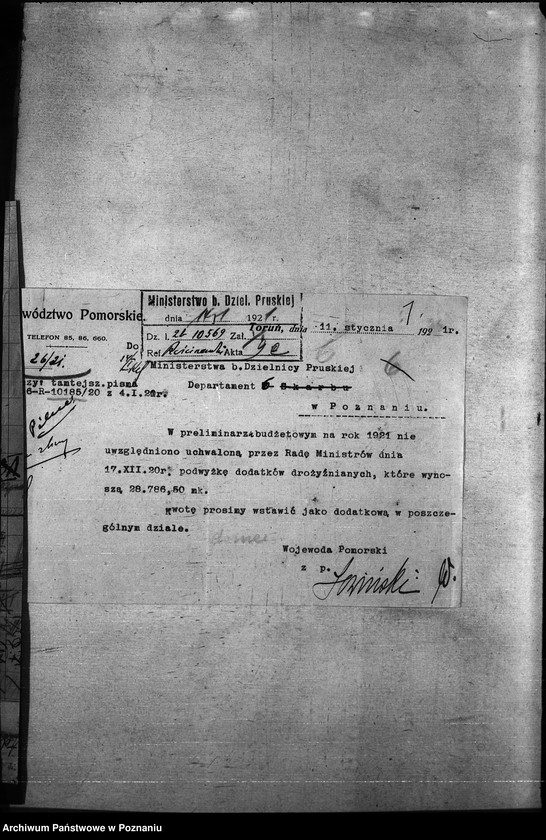 wództwo Pomorskie.
TELEFON 85, 86, 660.
26/21.
Ministerstwo b. Dziel. Pruskiej
dnia 1921 r.
Dz. l. 2t 10569 Zał.
Ref. Akta 9e
Toruń, dnia 11. stycznia 1921r.
Do
Ministerstwa b.Dzielnicy Pruskiej
zył tamtejsz.pisma
Departament 6 Skarbu
6-R-10185/20 z 4.I.21r.
w Poznaniu.
W preliminarzu budżetowym na rok 1921 nie
uwzględniono uchwaloną przez Radę Ministrów dnia
17.XII.20r. podwyżkę dodatków drożyźnianych, które wyno-
szą 28.786,50 mk.
Kwotę prosimy wstawić jako dodatkową w poszcze-
gólnym dziale.
Wojewoda Pomorski
z p.
Archiwum Państwowe w Poznaniu